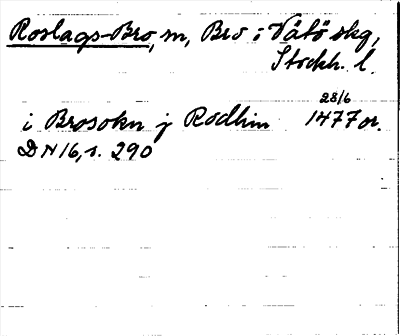 Roslags-Bro, sn, Bro i Vätö skg,
Stockh. l.
28/6
i Brosokn j Rodhin 1477 or.
DN 16, s. 290